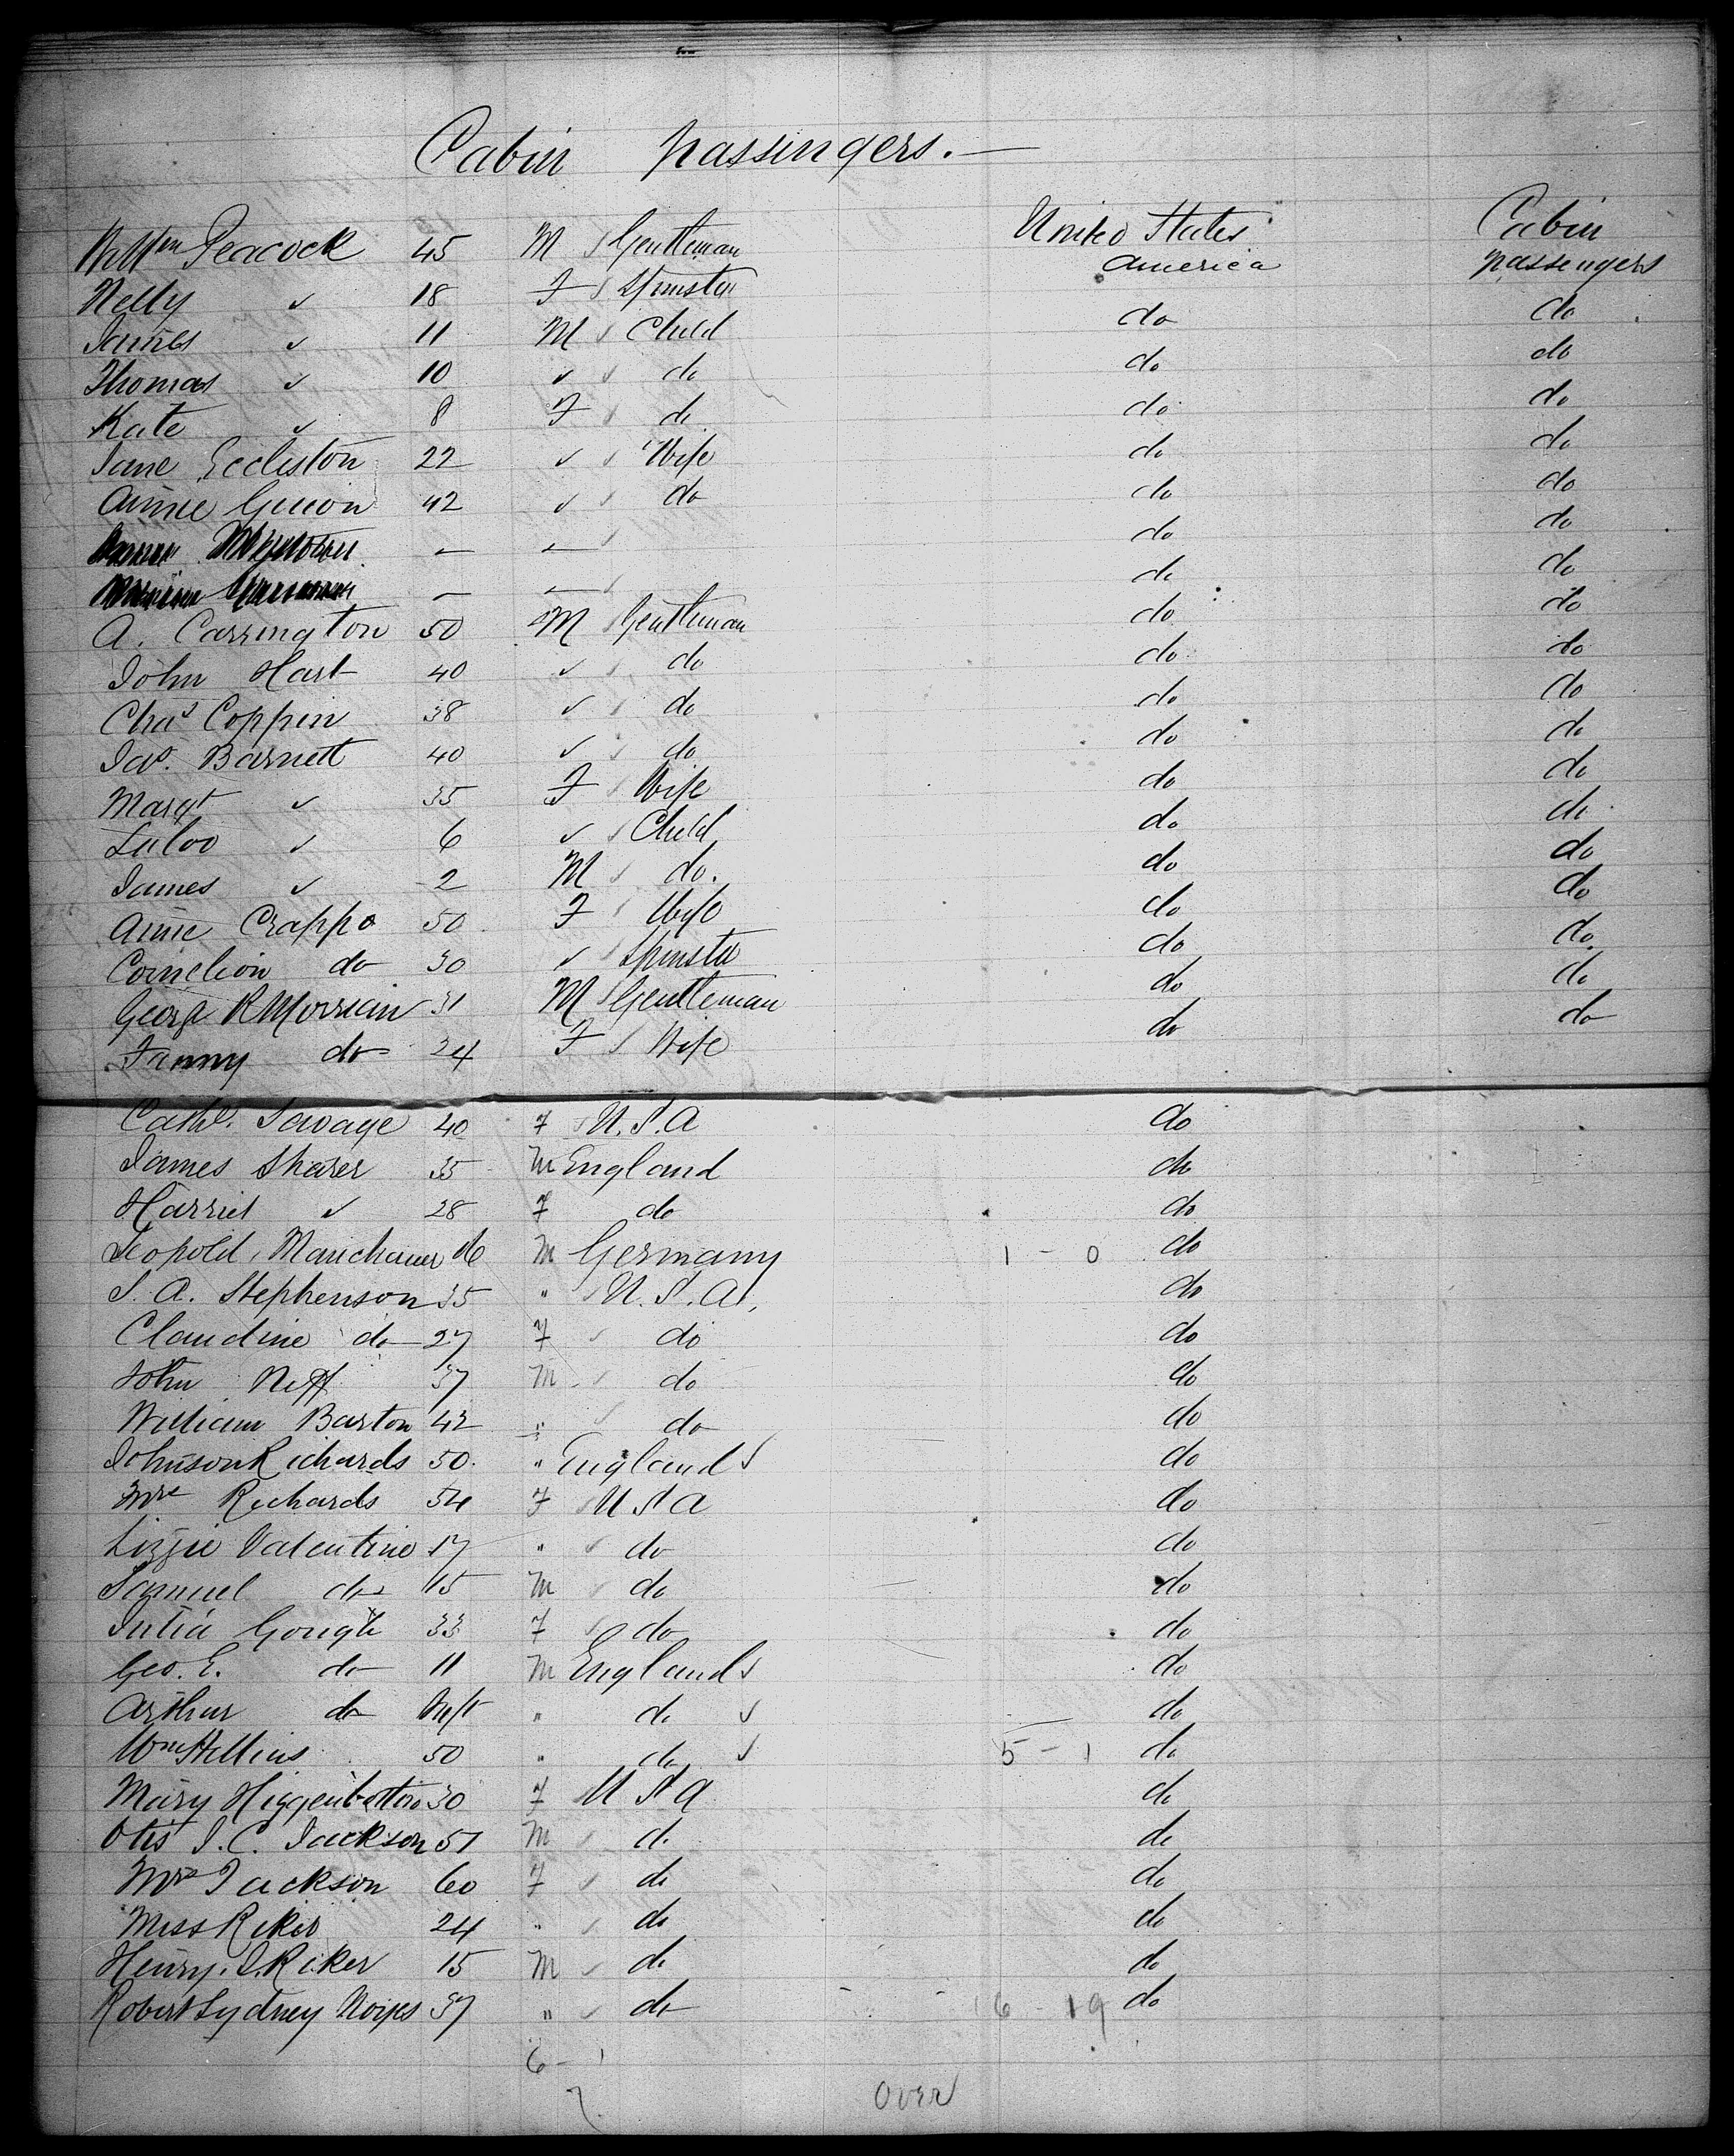 Cabin passengers.—
Willm Peacock 45 M Gentleman United States America Cabin passengers
Nelly ✓ 18 F Spinster do do
James ✓ 11 M Child do do
Thomas ✓ 10 ✓ do do do
Kate ✓ 8 F do do do
Jane Eccleston 22 ✓ Wife do do
Annie Guion 42 ✓ do do do
— — do do
— — do do
A. Carrington 50 M Gentleman do do
John Hart 40 ✓ do do do
Chas Coppin 38 ✓ do do do
Jas. Barnett 40 ✓ do do do
Margt ✓ 35 F Wife do do
Luloo ✓ 6 ✓ Child do do
James ✓ 2 M do. do do
Annie Crappo 50 F Wife do do
Cornelion do 30 ✓ Spinster do do
George R Morrian 31 M Gentleman do do
Fanny do 24 F Wife
Cathe. Savage 40 F U.S.A do
James Sharer 35 M England do
Harriet ✓ 28 F do do
Leopold M Germany 1 - 0 do
S. A. Stephenson 35 " U.S.A. do
Claudine do 27 F do do
John Neff 37 M do do
William Barton 42 " do do
Johnson Richards 50. " England do
Mrs Richards 54 F U S A do
Lizzie Valentine 17 " do do
Samuel do 15 M do do
Julia Gough 33 F do do
Geo. E. do 11 M England do
Arthur do Inft " do ✓ do
Wm Hellins 50 " do ✓ 5 - 1 do
Mary Higgenbotton 30 F U S A do
Otis J. C. Jackson 51 M do do
Mrs Jackson 60 F do do
Miss Riker 24 " do do
Henry. J. Riker 15 M do do
Robert Sydney Noyes 37 " do 16 - 19 do
6 - 1
7
Over